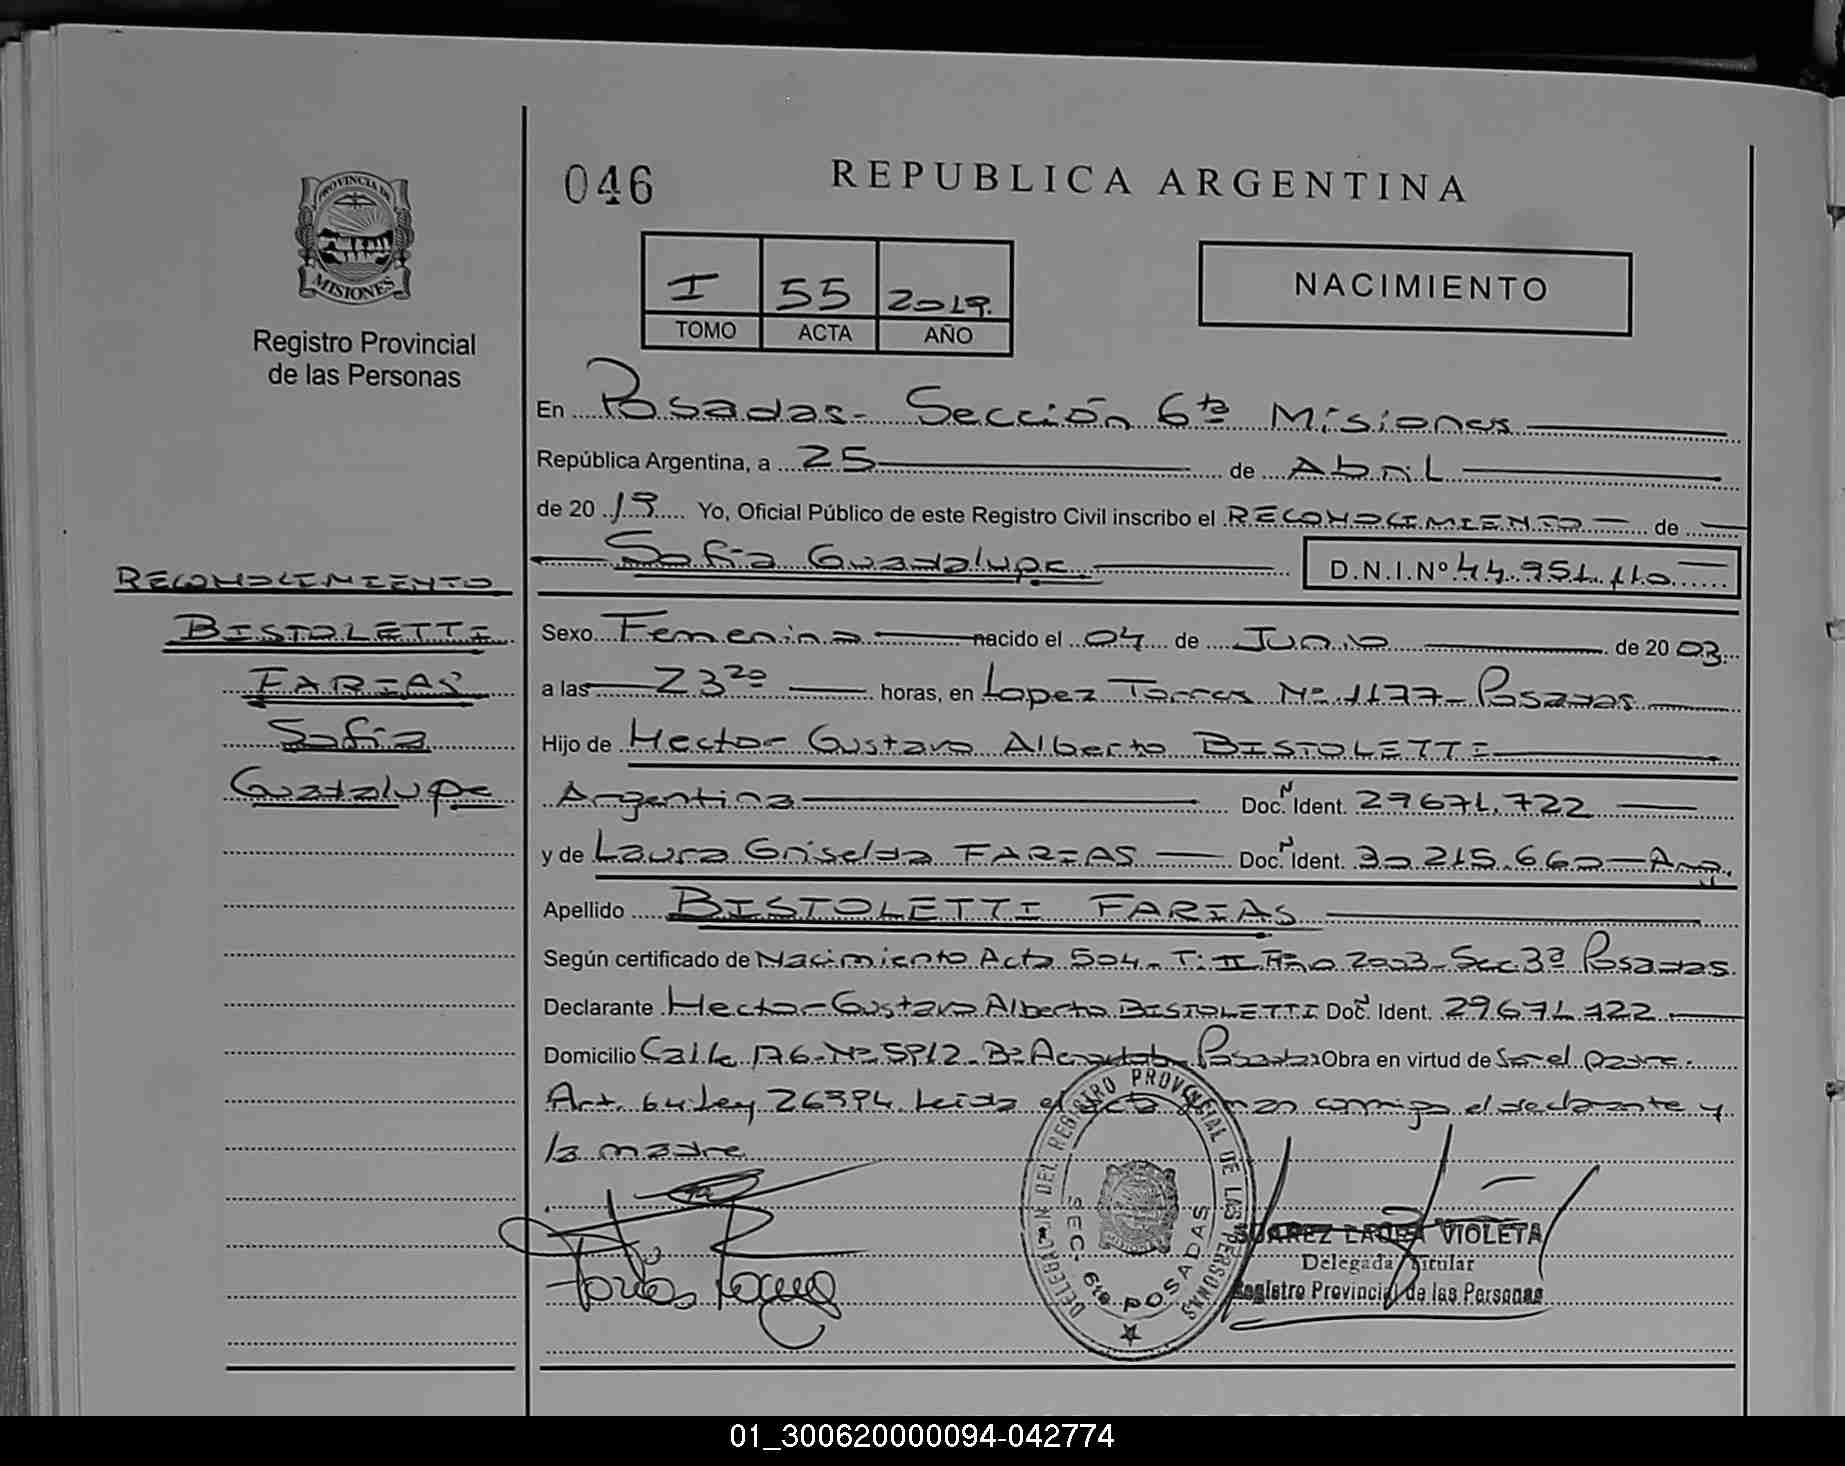 046
REPUBLICA ARGENTINA
PROVINCIA DE
MISIONES
Registro Provincial
de las Personas
I 55 2019.
TOMO ACTA AÑO
NACIMIENTO
En Posadas - Sección 6ta Misiones
República Argentina, a 25 de Abril
de 2019 Yo, Oficial Público de este Registro Civil inscribo el RECONOCIMIENTO de
Sofia Guadalupe D.N.I.Nº 44.951.110
RECONOCIMIENTO
BISTOLETTI
FARIAS
Sofia
Guadalupe
Sexo Femenina nacido el 04 de Junio de 2003
a las 23 20 horas, en Lopez Torres Nº 1177 - Posadas
Hijo de Hector Gustavo Alberto BISTOLETTI
Argentina Doc. N Ident. 29671.722
y de Laura Griselda FARIAS Doc. N Ident. 30.215.660 - Arg.
Apellido BISTOLETTI FARIAS
Según certificado de Nacimiento Acta 504 - T: II Año 2003 - Sec 3ª Posadas.
Declarante Hector Gustavo Alberto BISTOLETTI Doc. N Ident. 29671.722
Domicilio Calle 176 - Nº 5912 - Bº Posadas Obra en virtud de Ser el padre.
Art. 64 Ley 26994. Leida el acta firman conmigo el declarante y
la madre
Farias Laura
DELEGACION DEL REGISTRO PROVINCIAL DE LAS PERSONAS
SEC. 6ta POSADAS
SUAREZ LAURA VIOLETA
Delegada Titular
Registro Provincial de las Personas
01_300620000094-042774